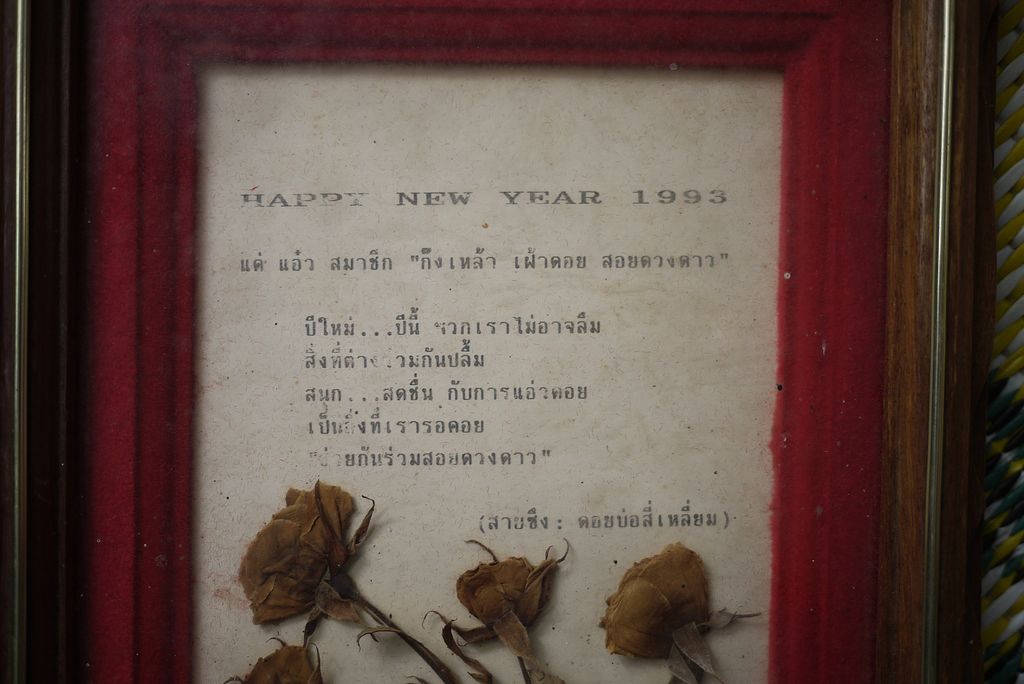 HAPPY NEW YEAR 1993
แด่ แอ๋ว สมาชิก "กิ๊งเหล้า เฝ้าดอย สอยดวงดาว"
ปีใหม่...ปีนี้ พวกเราไม่อาจลืม
สิ่งที่ต่างร่วมกันปลื้ม
สนุก...สดชื่น กับการแอ่วดอย
เป็นสิ่งที่เรารอคอย
"ช่วยกันร่วมสอยดวงดาว"
(สายซึง : ดอยบ่อสี่เหลี่ยม)